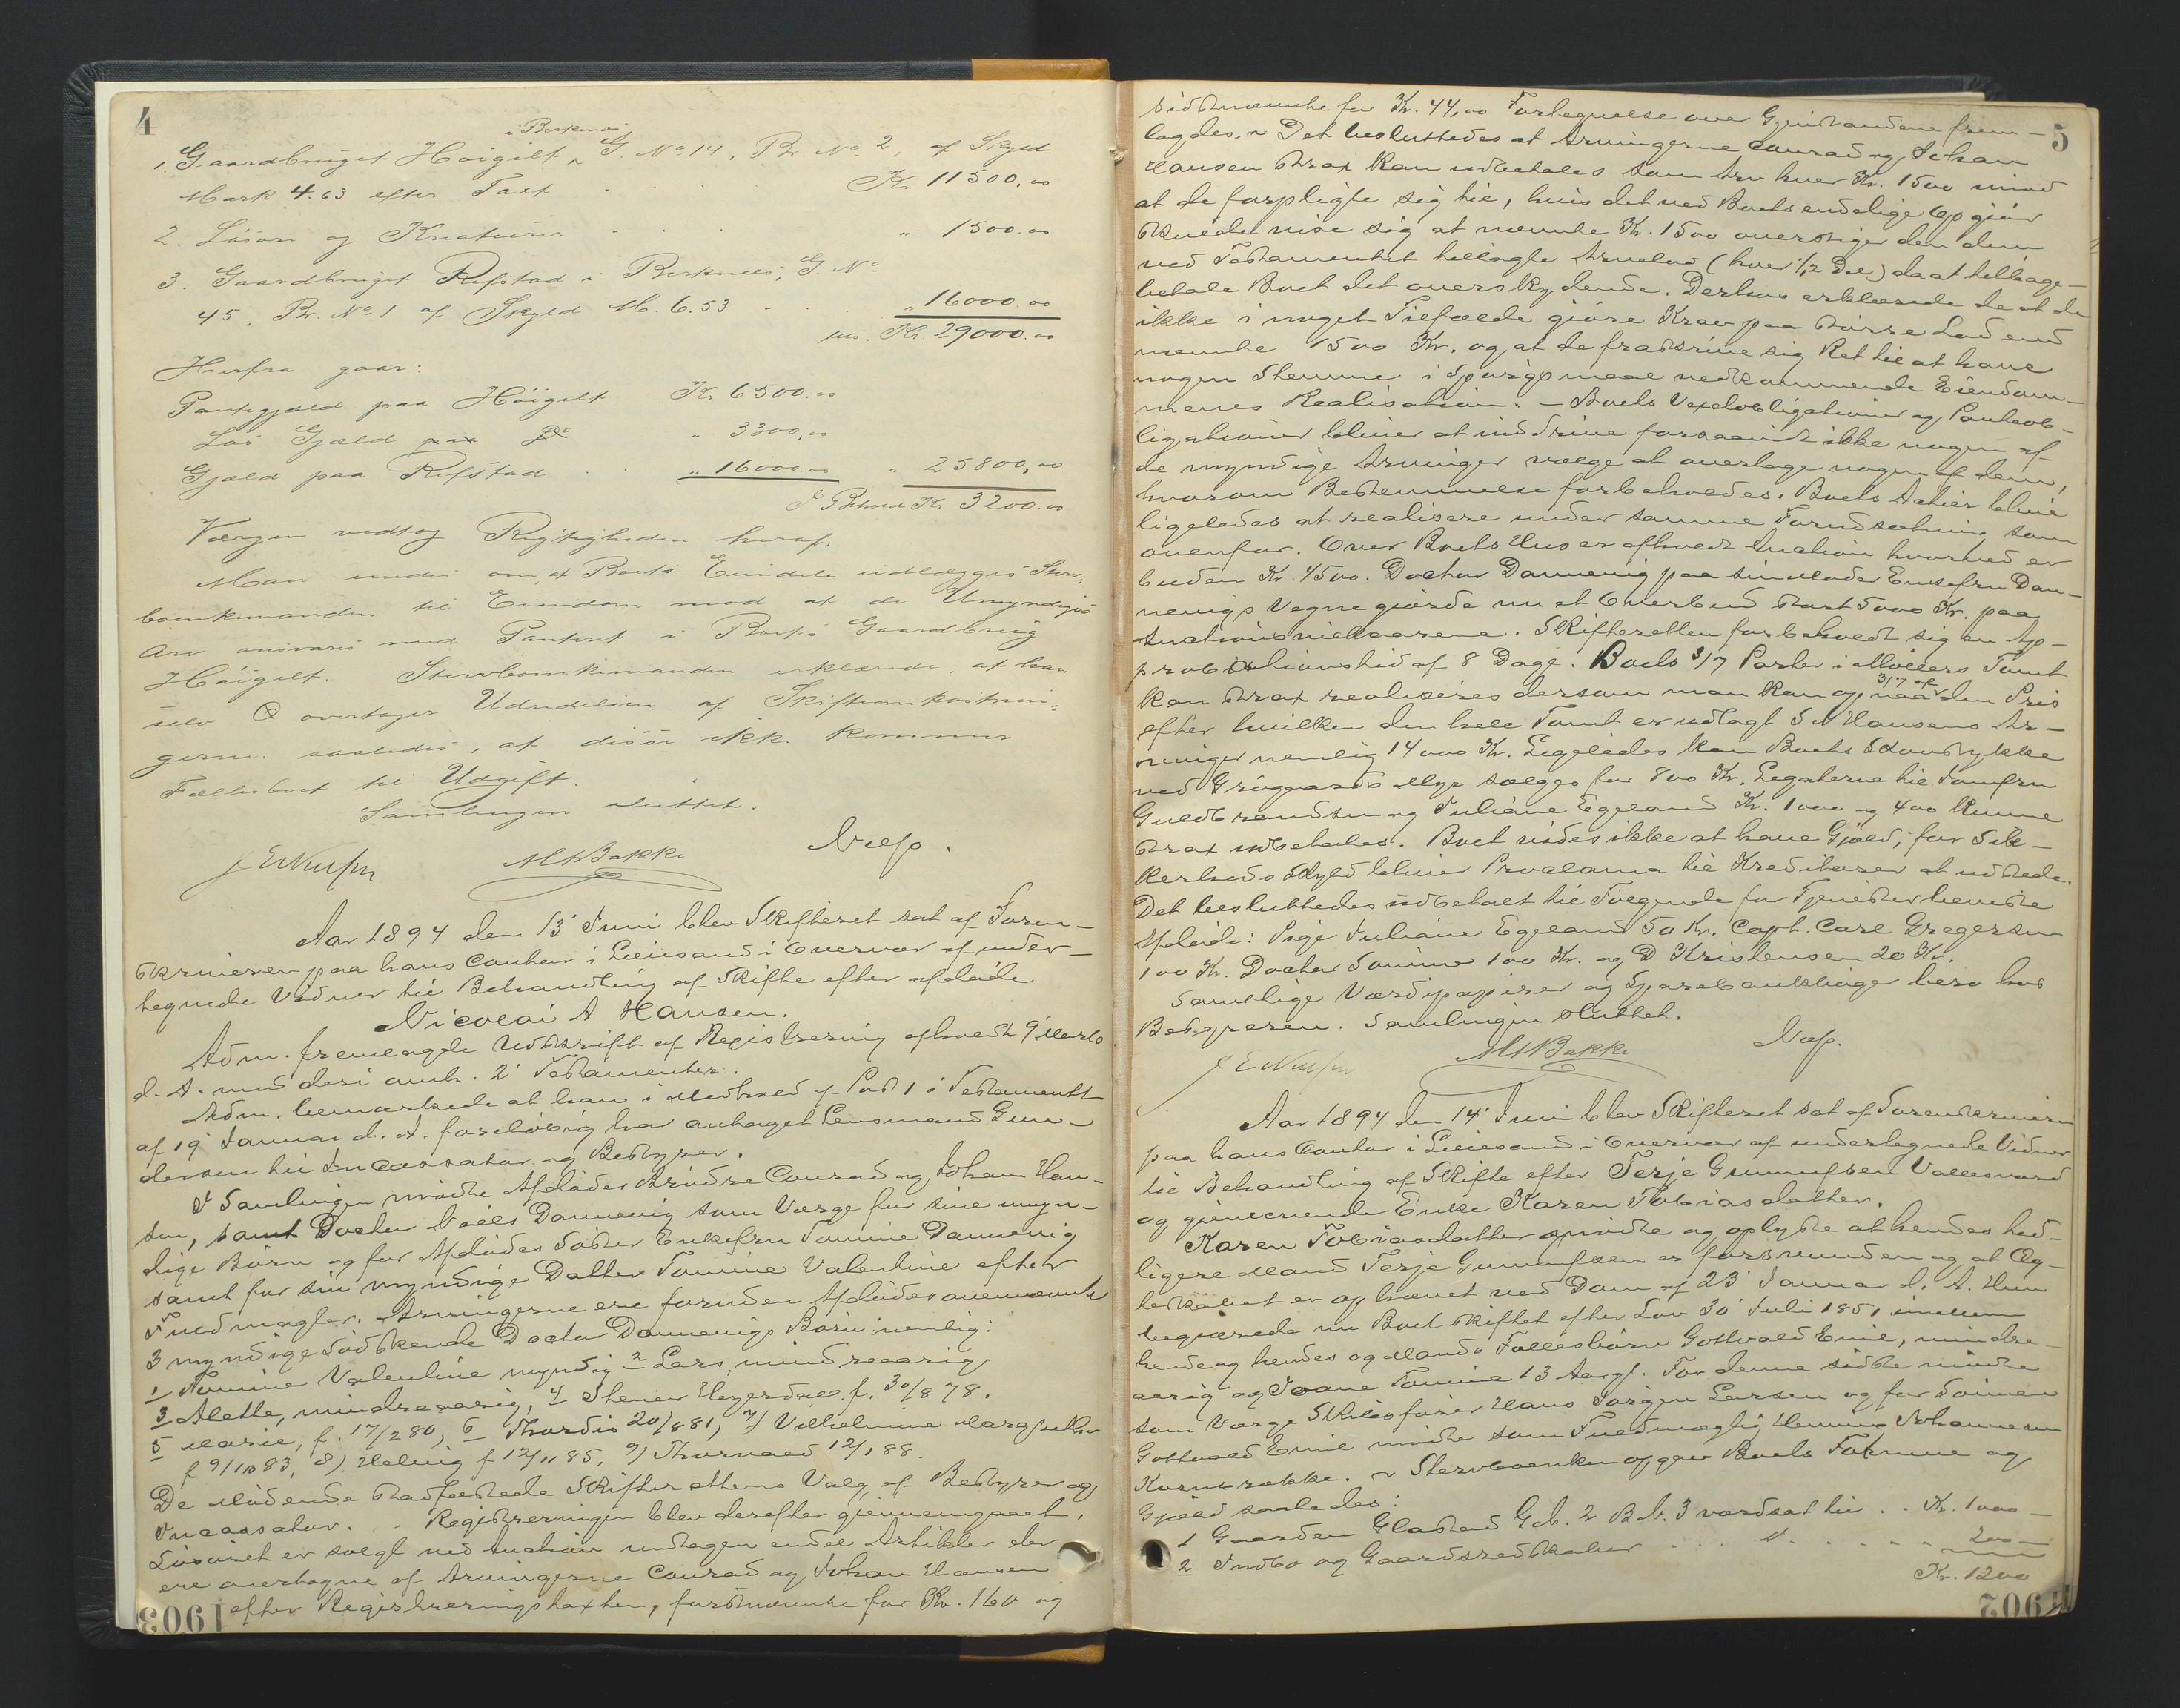 4
i Birkenæs
1. Gaardbruget Høigilt, G. No 14, Br. No 2, af Skyld
Mark 4.63 efter Taxt Kr. 11500.00
2. Løsøre og Kreaturer " 1500.00
3. Gaardbruget Refstad i Birkenæs, G. No
45, Br. No 1 af Skyld M. 6.53 - " 16000.00
Kr. 29000.00
Herfra gaar:
Pantegjæld paa Höigilt Kr. 6500.00
Løs Gjæld paa Do " 3300,00
Gjæld paa Refstad " 16000.00 " 25800,00
I Behold Kr. 3200.00
Værgen vedtog Rigtigheden heraf.
Man enedes om, at Boets Eiendele udlægges Sterv-
boenkemanden til Eiendom mod at de Umyndiges
Arv ansvares med Panteret i Boets Gaardbrug
Höigilt. Stervboenkemanden erklærede, at han
selv overtager Udredelsen af Skifteomkostnin-
gerne saaledes, at disse ikke kommer
Fællesboet til Udgift.
Samlingen sluttet.
M A Bakke
Aar 1894 den 13' Juni blev Skifteret sat af Soren-
skriveren paa hans Contor i Lillesand i Overvær af under-
tegnede Vidner til Behandling af Skifte efter afdøde
Nicolai A Hansen.
Adm. fremlagde Udskrift af Registrering afholdt 9' Marts
d. A. med deri omh. 2' Testamenter.
Adm. bemærkede at han i Medhold af Post 1 i Testamentet
af 19' Januar d. A. foreløbig har antaget Lensmand Gun-
dersen til Incassator og Bestyrer.
I Samlingen mødte Afdødes Brødre Conrad og Johan Han-
sen, samt Doctor Niels Dannevig som Værge for sine umyn-
dige Børn og for Afdødes Søster Enkefru Tomine Dannevig
samt for sin myndige Datter Tomine Valentine efter
Fuldmagter. Arvingerne ere foruden Afdødes ovennævnte
3 myndige Sødskende Doctor Dannevigs Børn: nemlig:
1 Tomine Valentine myndig 2 Lars, mindreaarig,
3 Alette, mindreaarig, 4 Stener Heyerdal f. 30/8 78.
5 Marie, f. 17/2 80, 6 Thordis 20/8 81, 7) Vilhelmine Margrethe
f 9/10 83, 8) Helvig f 12/11 85, 9) Thorvald 12/1 88.
De Mødende stadfæstede Skifterettens Valg af Bestyrer og
Incassator. . Registreringen blev derefter gjennemgaaet.
Løsøret er solgt ved Auction undtagen endel Artikler der
ere overtagne af Arvingerne Conrad og Johan Hansen
efter Registreringstaxten, førstnævnte for Kr. 160 og
1903
5
sidstnævnte for Kr. 44,00 Fortegnelse over Gjenstandene frem-
lagdes. Det besluttedes at Arvingerne Conrad og Johan
Hansen strax kan udbetales som Arv hver Kr. 1500 mod
at de forpligte sig til, hvis det ved Boets endelige Opgjør
skulde vise sig at nævnte Kr. 1500 overstiger den dem
ved Testamentet tillagte Arvelod (hver 1/12 Del) da at tilbage-
betale Boet det overskydende. Derhos erklærede de at de
ikke i noget Tilfælde gjøre Krav paa større Lod end
nævnte 1500 Kr. og at de fraskrive sig Ret til at have
nogen Stemme i Spørgsmaal vedkommende Eiendom-
menes Realisation. - Boets Vexelobligationer og Panteob-
ligationer bliver at inddrive forsaavidt ikke nogen af
de myndige Arvinger vælge at overtage nogen af dem,
hvorom Bestemmelse forbeholdes. Boets Actier blive
ligeledes at realisere under samme Forudsætning som
ovenfor. Over Boets Hus er afholdt Auction hvorved er
buden Kr. 4500. Doctor Dannevig paa sin Moder Enkefru Dan-
nevigs Vegne gjorde nu et Overbud stort 5000 Kr. paa
Auctionsvilkaarene. Skifteretten forbeholdt sig en Ap-
probationstid af 8 Dage. Boets 3/7 Parter i Møllers Tomt
3/7 af
kan strax realiseres dersom man kan opnaa den Pris
efter hvilken den hele Tomt er udlagt S N Hansens Ar-
vinger nemlig 14000 Kr. Ligeledes kan Boets Skovstykke
ved Grøgaards Myr sælges for 800 Kr. Legaterne til Jomfru
Guldbrandsen og Juliane Egeland Kr. 1000 og 400 kunne
strax udbetales. Boet vides ikke at have Gjæld; for Sik-
kerheds Skyld bliver Proclama til Kreditorer at udstede.
Det besluttedes udbetalt til Følgende for Tjenester beviste
Afdøde: Pige Juliane Egeland 50 Kr. Capt. Carl Gregersen
100 Kr. Doctor Sømme 100 Kr. og D Kristensen 20 Kr.
Samtlige Værdipapirer og Sparebankbøger bero hos
Bestyreren. Samlingen sluttet.
M A Bakke
Aar 1894 den 14' Juni blev Skifteret sat af Sorenskriveren
paa hans Contor i Lillesand i Overvær af undertegnede Vidner
til Behandling af Skifte efter Terje Gunnufsen Vallesværd
og gjenlevende Enke Karen Tobiasdatter.
Karen Tobiasdatter mødte og oplyste at hendes tid-
ligere Mand Terje Gunnufsen er forsvunden og at Æg-
teskabet er ophævet ved Dom af 23' Januar d. A. Hun
begjærede nu Boet skiftet efter Lov 30' Juli 1851 imellem
hende og hendes og Mands Fællesbørn Gotvald Emil, mindre-
aarig og Joane Tomine 13 Aar gl. For denne sidste mødte
som Værge Skibsfører Hans Jørgen Larsen og for Sønnen
Gotvald Emil mødte som Fuldmægtig Henning Johannesen
Kornbrekke. Stervboenken opgav Boets Formue og
Gjæld saaledes:
1 Gaarden Glastad Gb. 2 Bb. 3 værdsat til . . Kr. 1000 -
2 Indbo og Gaardsredskaber . . . " . . . . . 200 -
Kr. 1200
1902